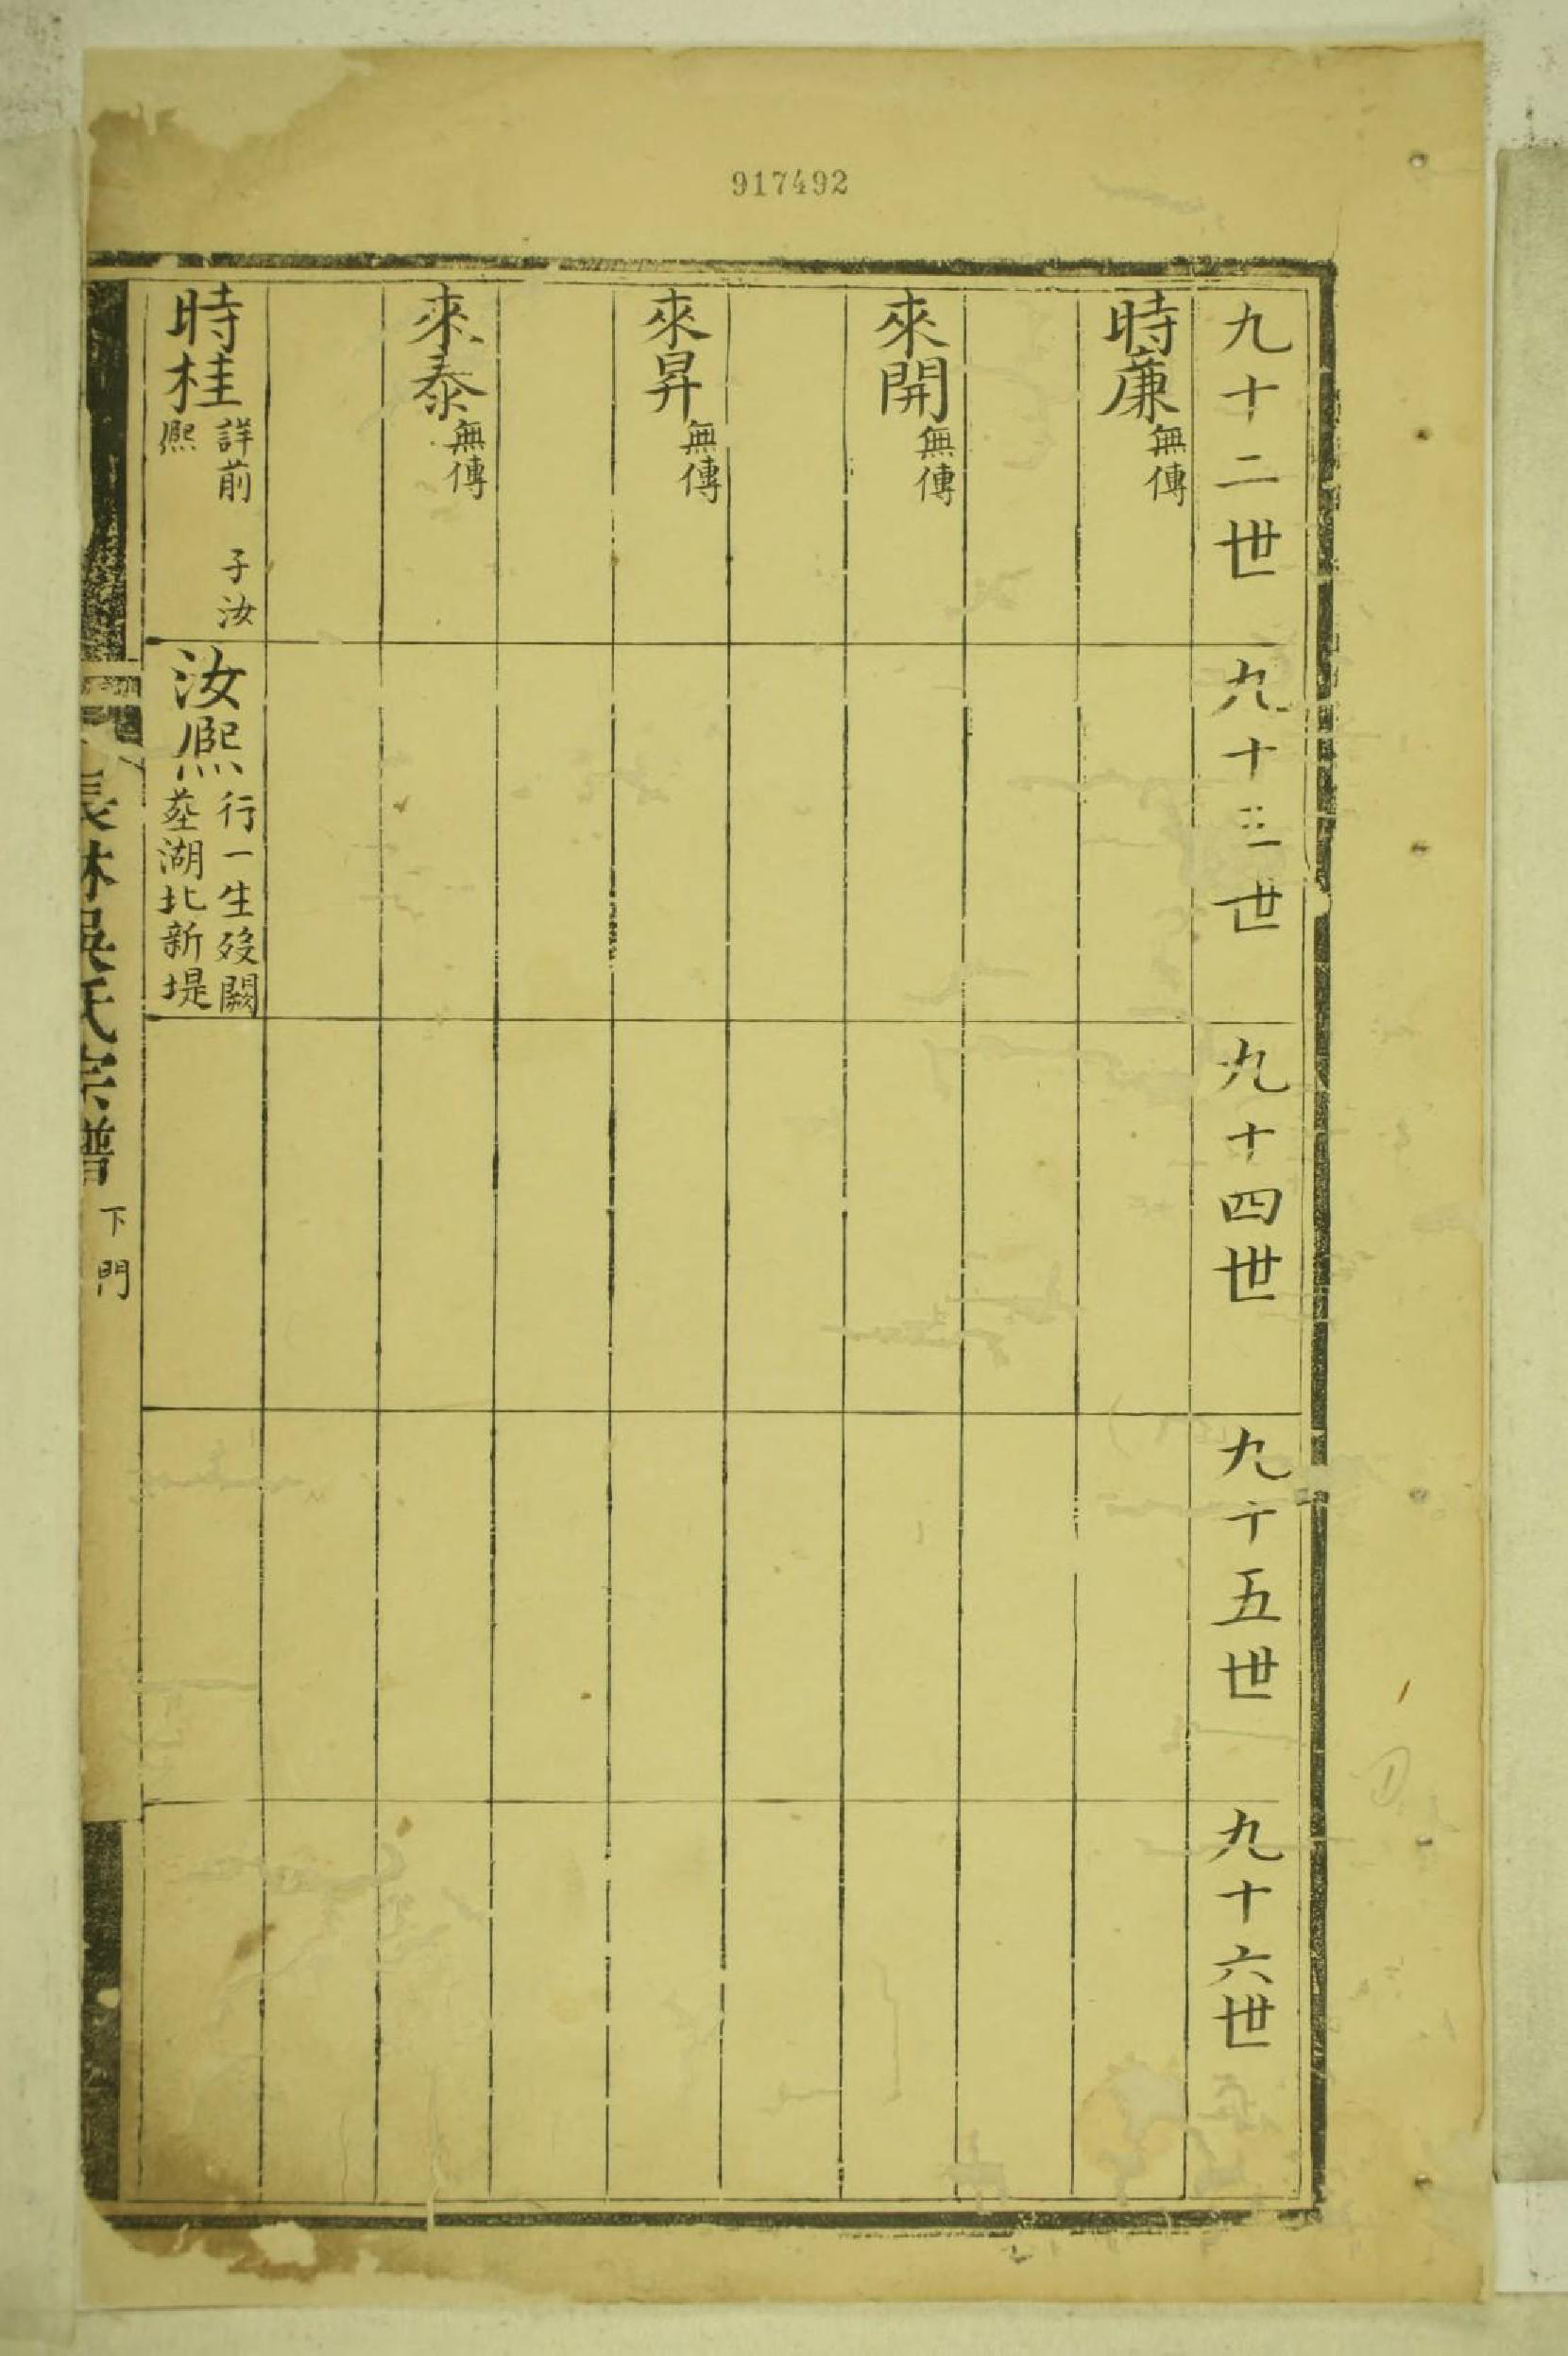 917492
九十二世
九十三世
九十四世
九十五世
九十六世
時廉 無傳
來開 無傳
來昇 無傳
來泰 無傳
時桂 詳前 子汝
熈
汝熈 行一生歿闕
塟湖北新堤
長林吳氏宗譜 下門